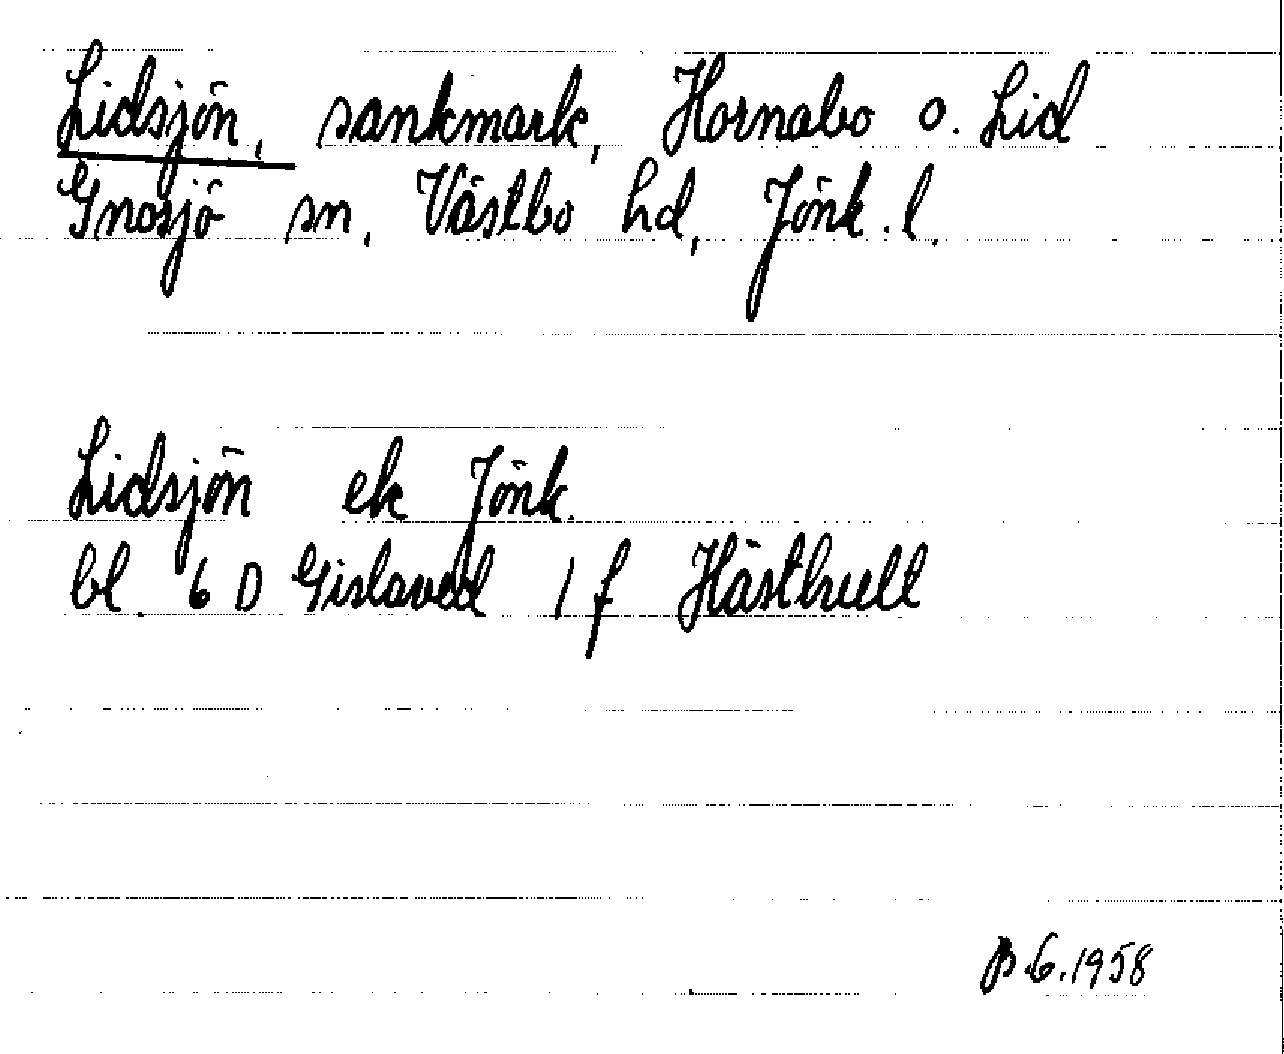 Lidsjön, sankmark, Hornabo o. Lid
Gnosjö sn, Västbo hd, Jönk. l.
Lidsjön ek Jönk.
bl. 6 D Gislaved 1 f Hästhult
6.1958